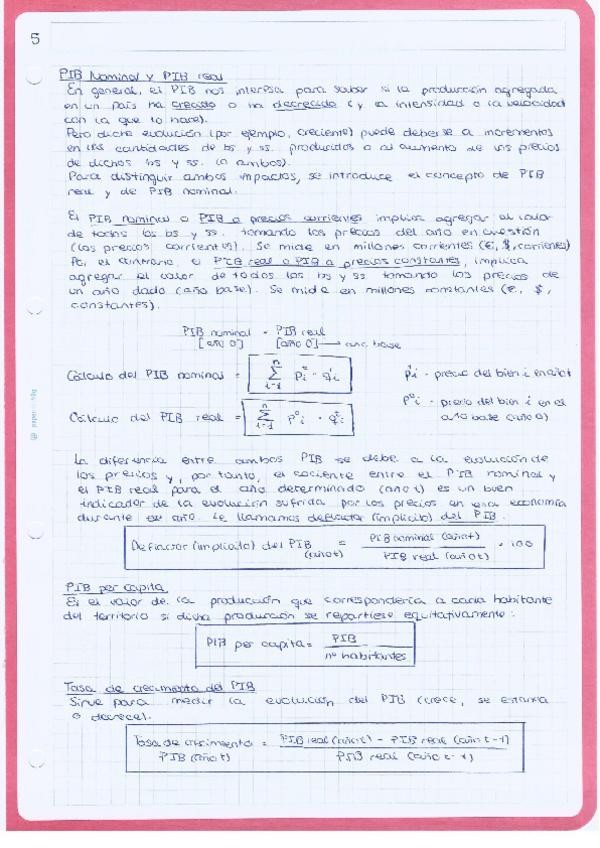 5
PIB Nominal y PIB real
En general, el PIB nos interesa para saber si la producción agregada
en un país ha crecido o ha decrecido (y la intensidad o la velocidad
con la que lo hace).
Pero dicha evolución (por ejemplo, creciente) puede deberse a incrementos
en las cantidades de bs y ss. producidos o al aumento de los precios
de dichos bs y ss. (o ambos).
Para distinguir ambos impactos, se introduce el concepto de PIB
real y de PIB nominal.
El PIB nominal o PIB a precios corrientes implica agregar el valor
de todos los bs y ss. tomando los precios del año en cuestión
(los precios corrientes). Se mide en millones corrientes (€, $, corrientes)
Por el contrario, el PIB real o PIB a precios constantes, implica
agregar el valor de todos los bs y ss tomando los precios de
un año dado (año base). Se mide en millones constantes (€, $,
constantes).
PIB nominal = PIB real
[año 0] [año 0] → año base
Cálculo del PIB nominal = n ∑ i=1 pᵗi · qᵗi
pᵗi = precio del bien i en año t
Cálculo del PIB real = n ∑ i=1 p⁰i · qᵗi
p⁰i = precio del bien i en el
año base (año 0)
La diferencia entre ambos PIB se debe a la evolución de
los precios y, por tanto, el cociente entre el PIB nominal y
el PIB real para el año determinado (año t) es un buen
indicador de la evolución sufrida por los precios en esa economía
durante ese año. Le llamamos deflactor (implícito) del PIB.
Deflactor (implícito) del PIB (año t) = PIB nominal (año t) / PIB real (año t) · 100
PIB per capita
Es el valor de la producción que correspondería a cada habitante
del territorio si dicha producción se repartiese equitativamente:
PIB per capita = PIB / nº habitantes
Tasa de crecimiento del PIB
Sirve para medir la evolución del PIB (crece, se estanca
o decrece).
Tasa de crecimiento PIB (año t) = PIB real (año t) - PIB real (año t-1) / PIB real (año t-1)